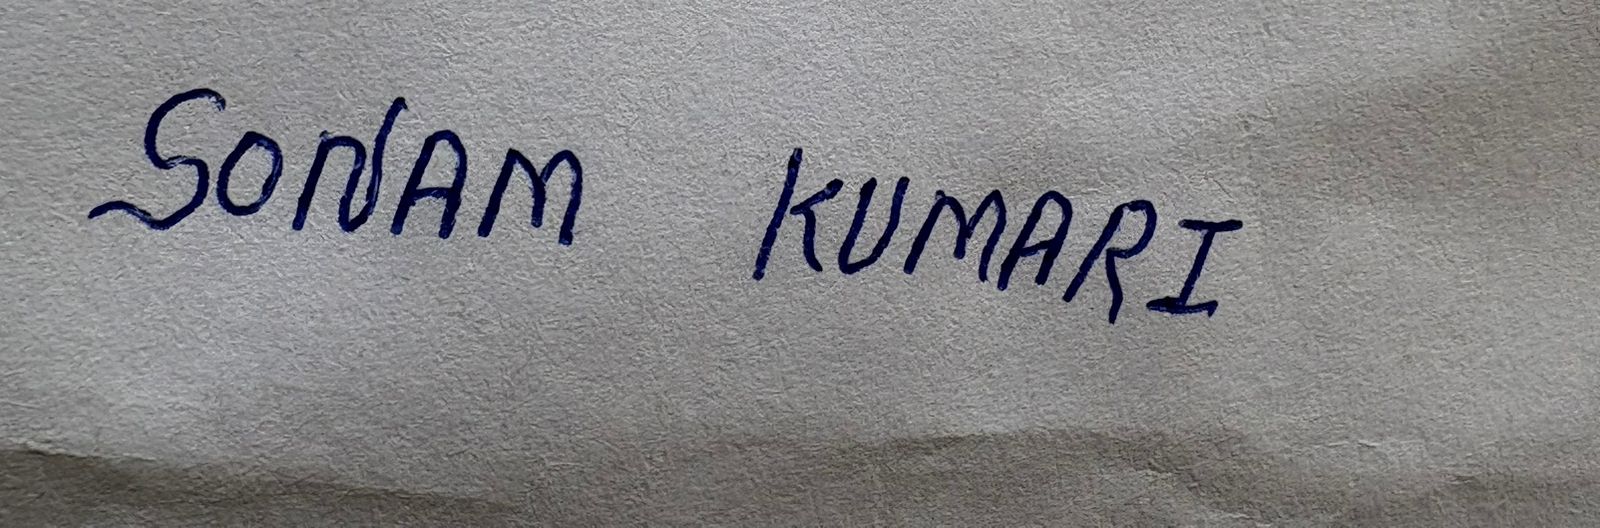 SONAM KUMARI